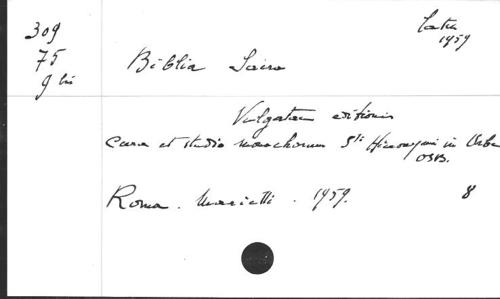 309
75
9 bis
Latin
1959
Biblia Sacra
Vulgatae editionis
Cura et studio monachorum Sti Hieronymi in Urbe
OSB.
Roma. Marietti. 1959.
8